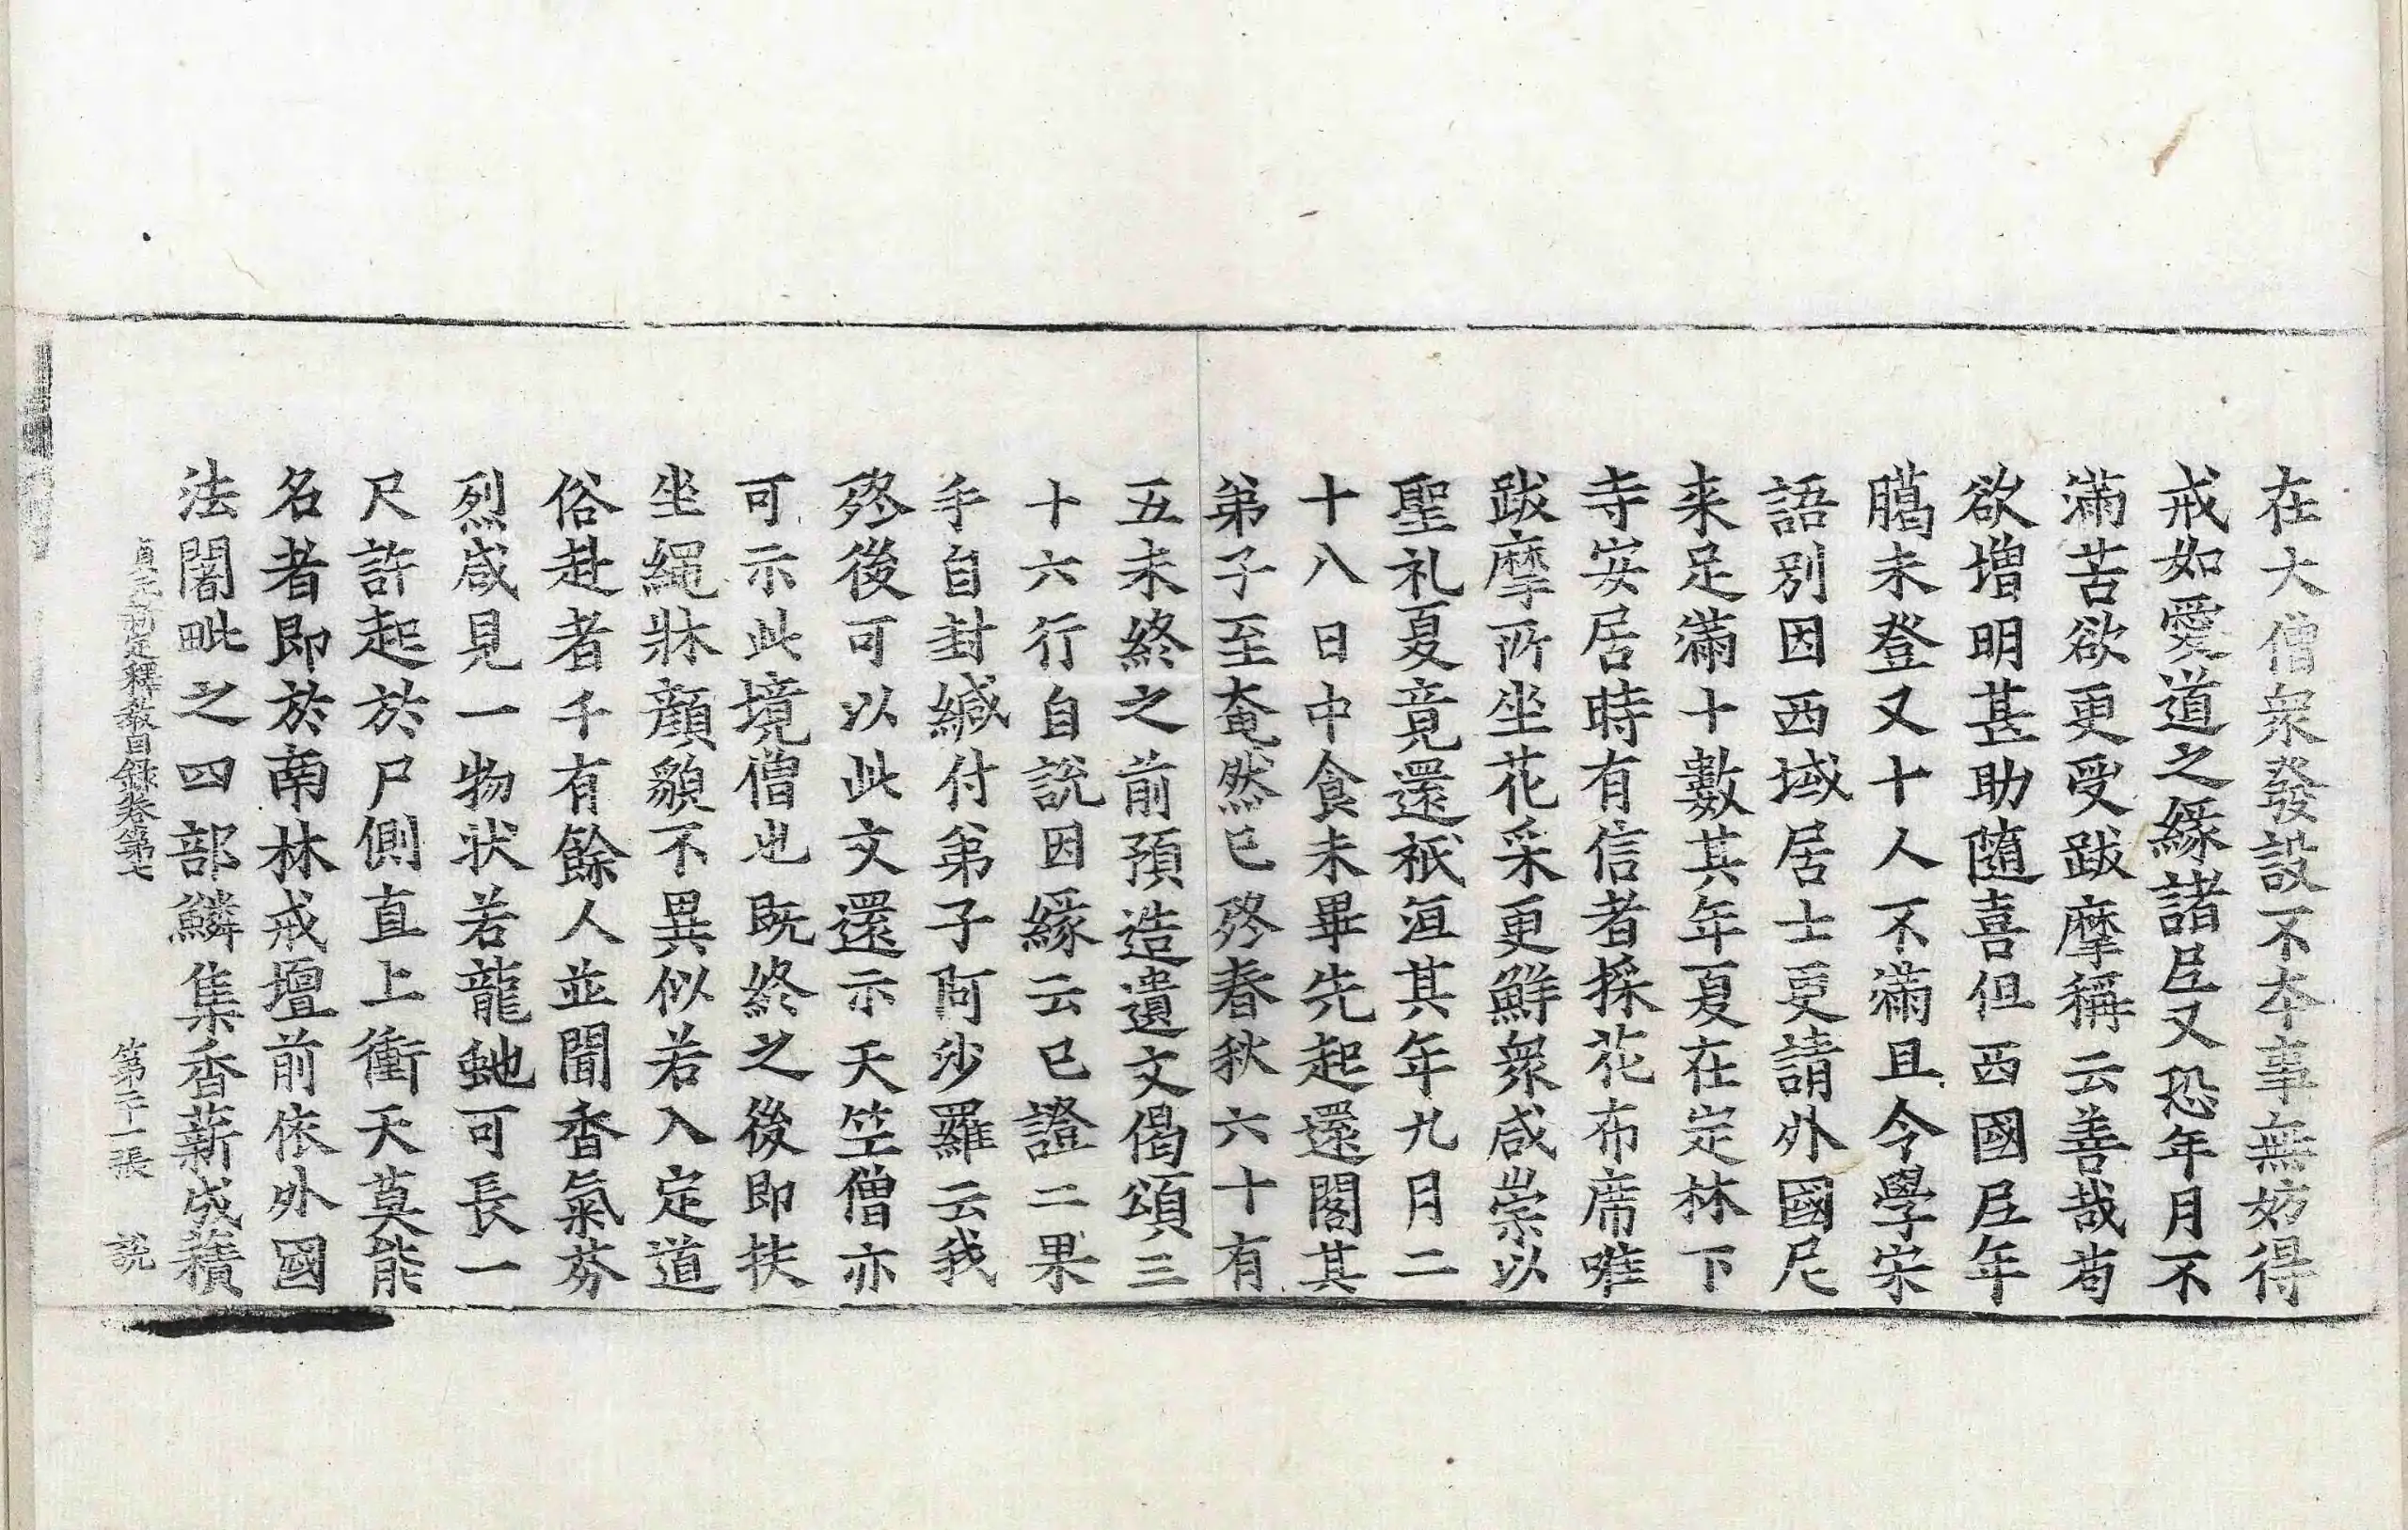 在大僧衆發設不夲事無妨得
戒如愛道之緣諸𡰱又恐年月不
滿苦欲更受跋摩稱云善哉苟
欲增明甚助隨喜但西國𡰱年
臈未登又十人不滿且令學宋
語別因西域居士更請外國尼
来足滿十數其年夏在定林下
寺安居時有信者採花布席唯
跋摩所坐花采更鮮衆咸崇以
聖礼夏竟還祇洹其年九月二
十八日中食未畢先起還閣其
弟子至奄然已終春秋六十有
五未終之前預造遺文偈頌三
十六行自說因緣云已證二果
手自封緘付弟子阿沙羅云我
終後可以此文還示天竺僧亦
可示此境僧也既終之後即扶
坐繩牀顏貌不異似若入定道
俗赴者千有餘人並聞香氣芬
烈咸見一物状若龍虵可長一
尺許起於尸側直上衝天莫能
名者即於南林戒壇前依外國
法闍毗之四部鱗集香薪成積
貞元新定釋教目錄卷第七 第二十一張 說